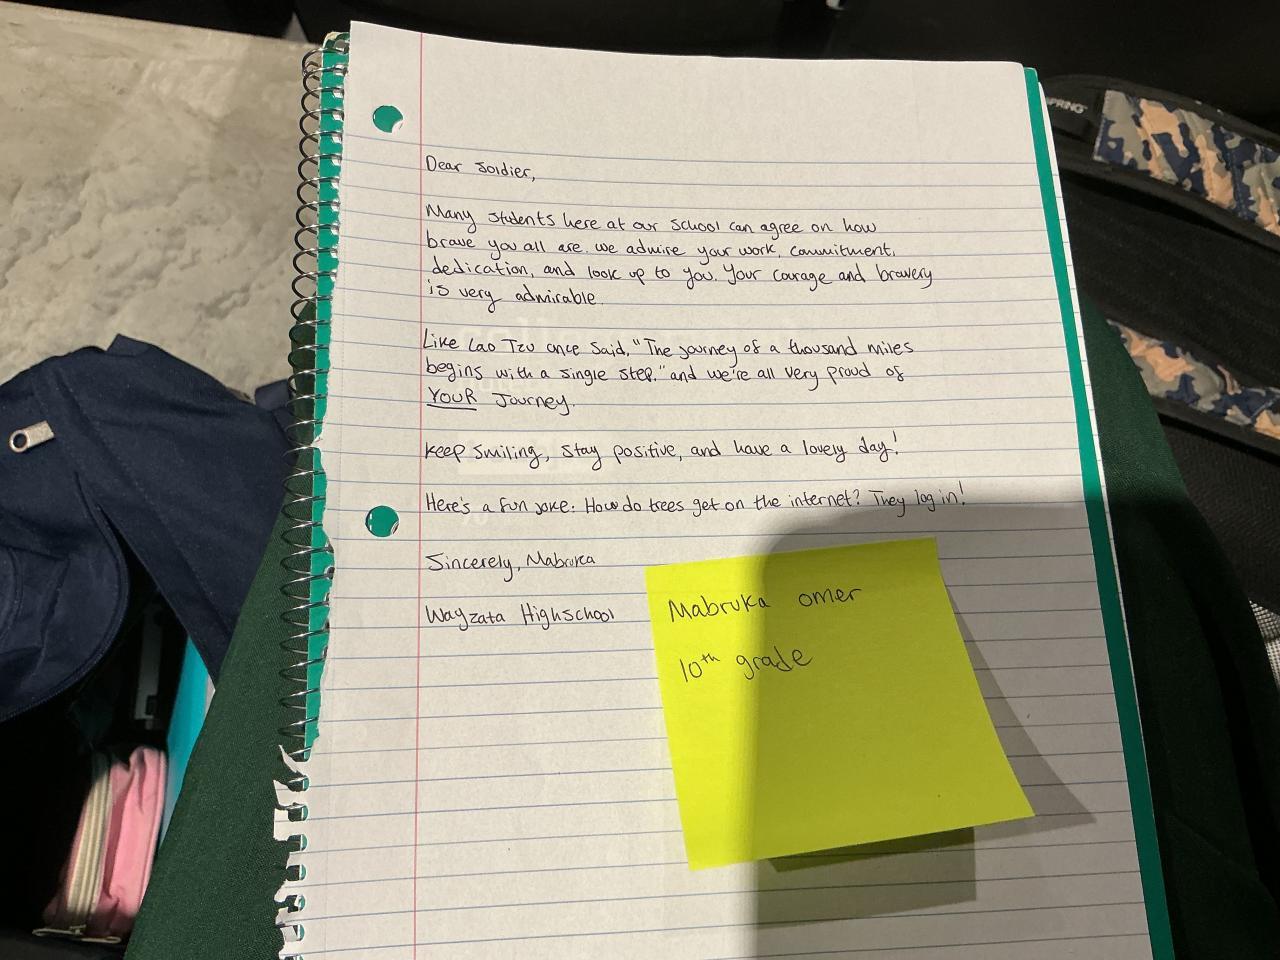 Dear Soldier,
Many students here at our school can agree on how
brave you all are. we admire your work, commitment,
dedication, and look up to you. Your courage and bravery
is very admirable.
Like Lao Tzu once said, "The journey of a thousand miles
begins with a single step." and we're all very proud of
YOUR Journey.
Keep smiling, stay positive, and have a lovely day!
Here's a fun joke: How do trees get on the internet? They log in!
Sincerely, Mabruka
Wayzata Highschool
Mabruka omer
10th grade